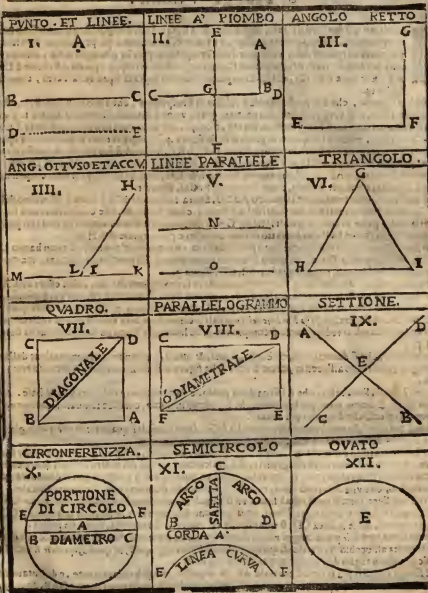 PVNTO . ET LINEE.
LINEE A' PIOMBO
ANGOLO RETTO
I. A
B C
D E
II. E A
C G B D
F
III. G
E F
ANG. OTTVSO ET ACCV
LINEE PARALLELE
TRIANGOLO.
IIII. H
M L I K
V.
N
O
VI. G
H I
QVADRO.
PARALLELOGRAMMO
SETTIONE.
VII.
C D
DIAGONALE
B A
VIII.
C D
Ó DIAMETRALE
F E
IX.
A D
E
C B
CIRCONFERENZZA.
SEMICIRCOLO
OVATO
X.
PORTIONE
DI CIRCOLO
E F
A
B DIAMETRO C
XI. C
ARCO SAETTA ARCO
B D
CORDA A'
LINEA CVRVA
E F
XII.
E